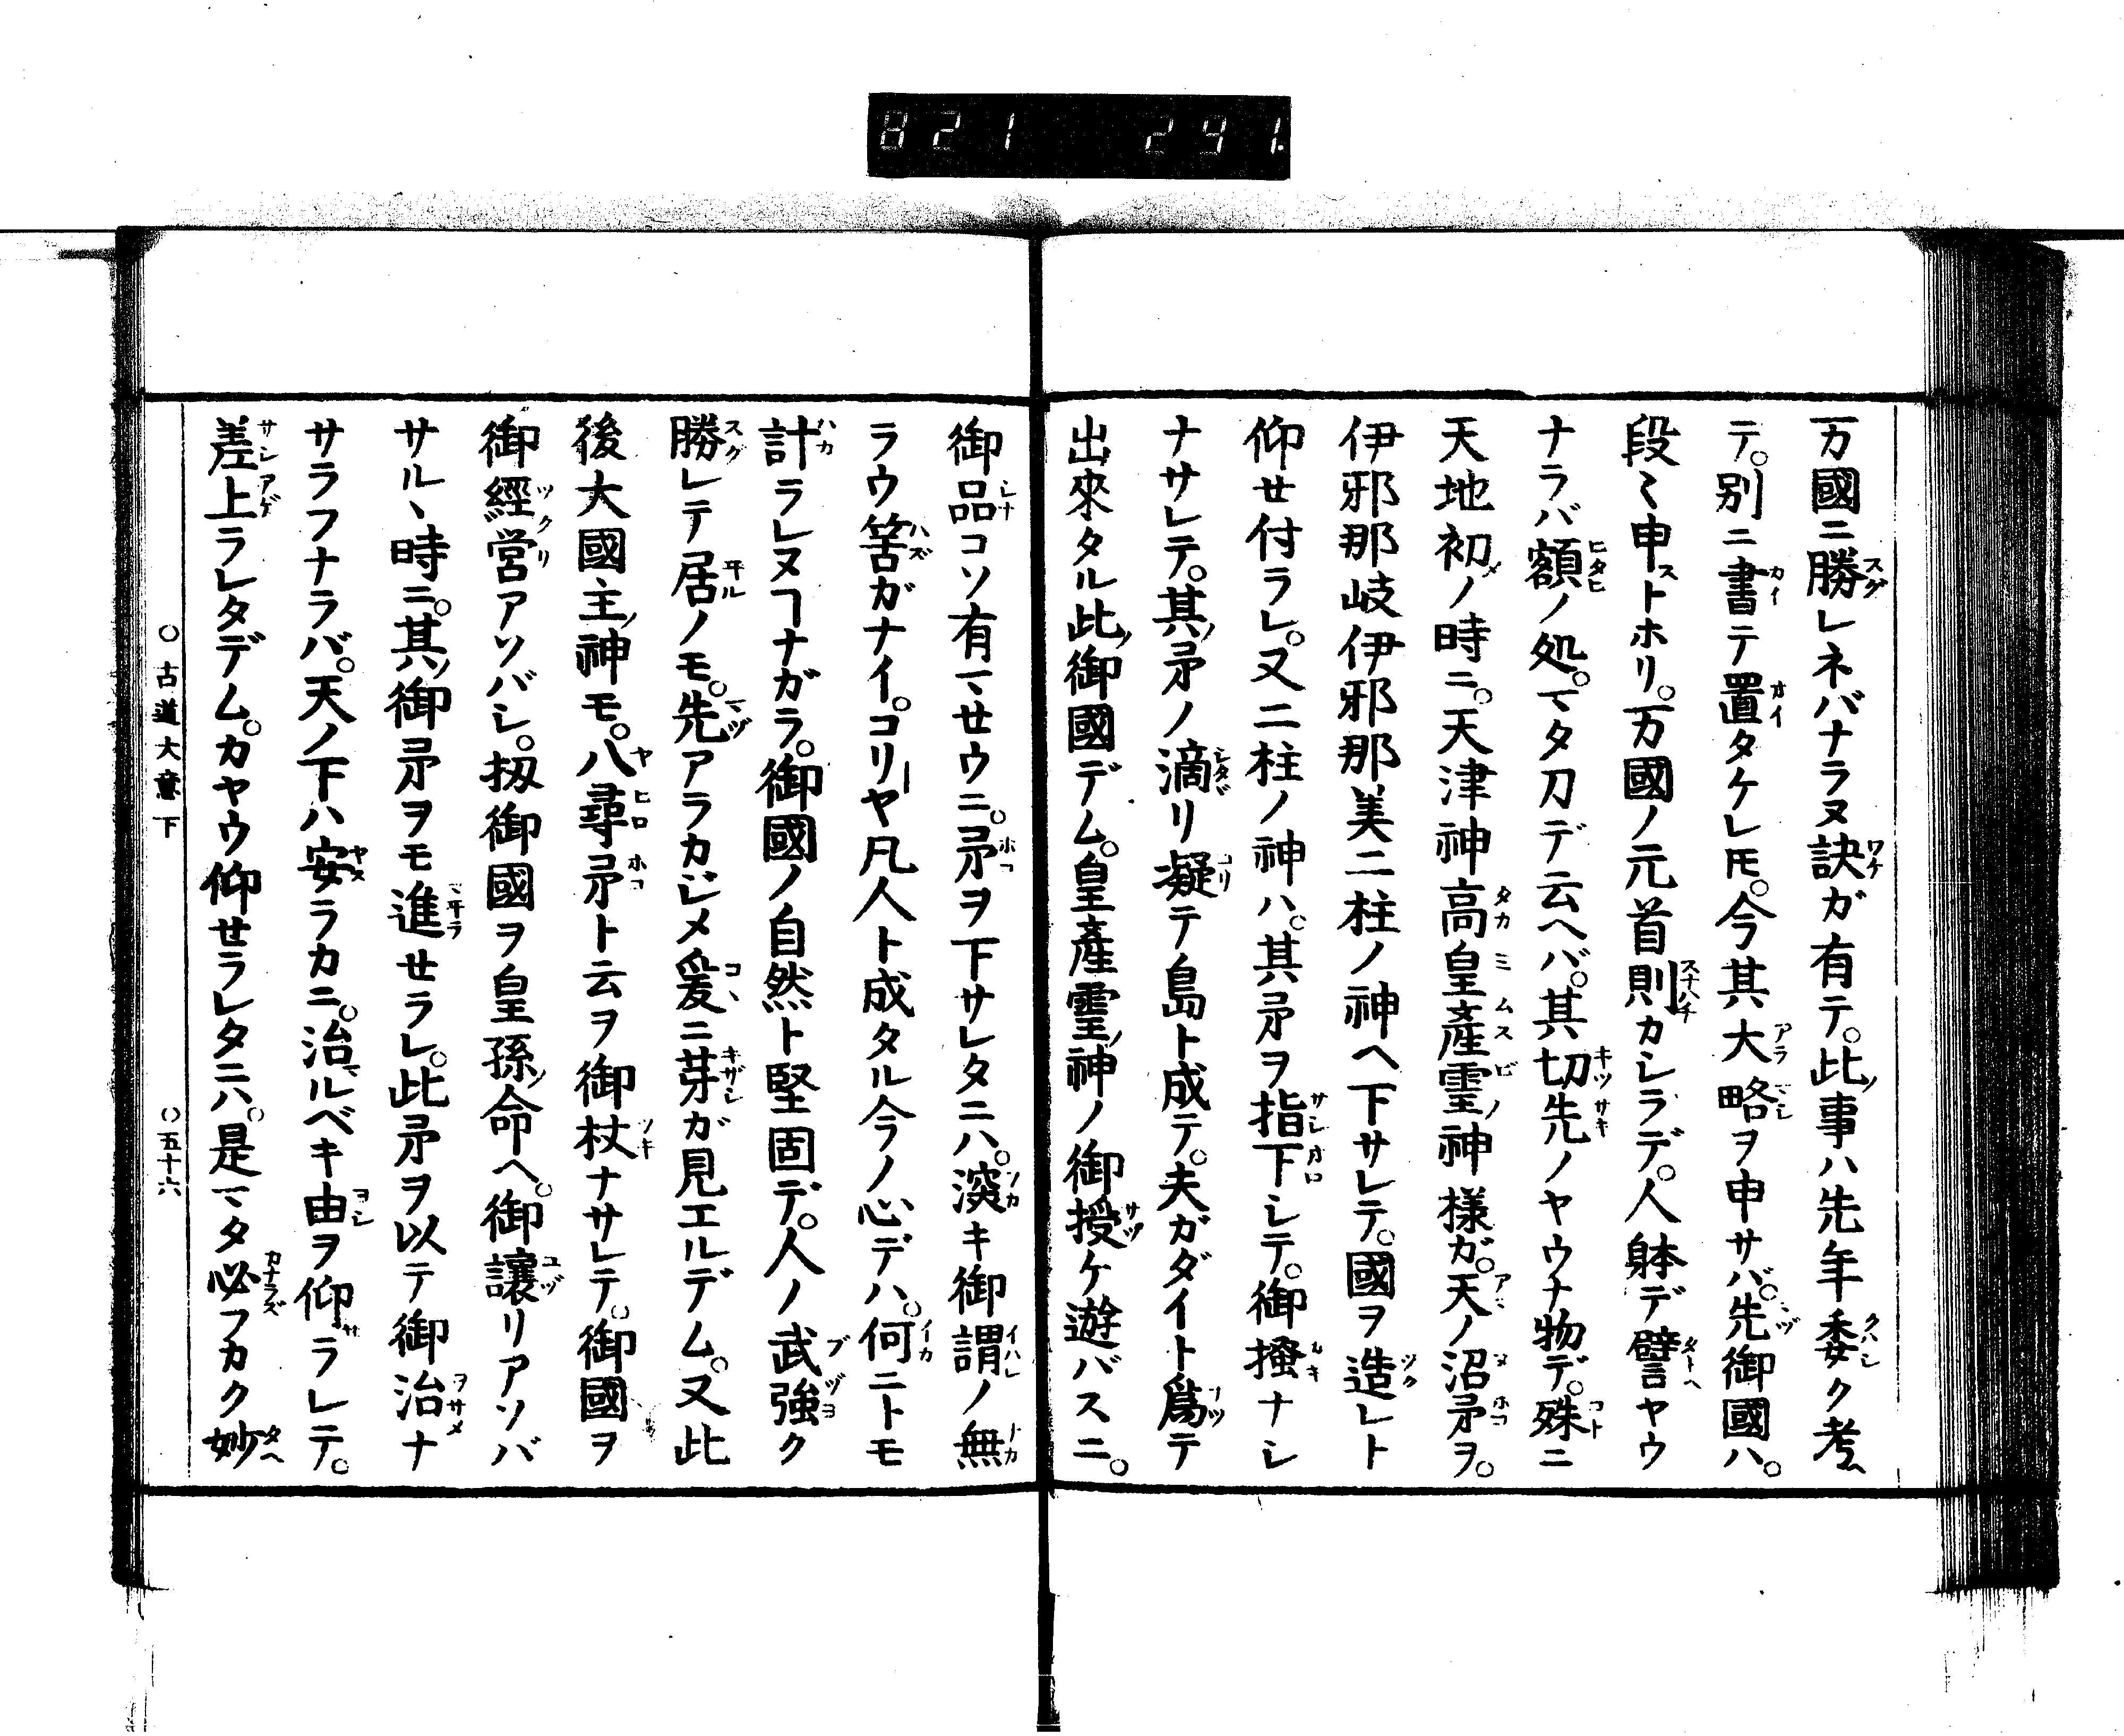 821 291.
万國ニ勝レネバナラヌ訣ガ有テ。此ノ事ハ先年委ク考ヘ
テ。別ニ書テ置タケレ𪜈。今其大略ヲ申サバ。先御國ハ。
段〻申ストホリ。万國ノ元首則カシラデ。人躰デ譬ヤウ
ナラバ額ノ処。マタ刀デ云ヘバ。其切先ノヤウナ物デ。殊ニ
天地初メノ時ニ。天津神高皇產靈神様ガ。天ノ沼矛ヲ。
伊邪那岐伊邪那美二柱ノ神ヘ下サレテ。國ヲ造レト
仰せ付ラレ。又二柱ノ神ハ。其矛ヲ指下シテ。御掻ナシ
ナサレテ。其ノ矛ノ滴リ凝テ島ト成テ。夫ガダイト爲テ
出來タル此ノ御國デム。皇產靈ノ神ノ御授ケ遊バスニ。
御品コソ有マせウニ。矛ヲ下サレタニハ。深キ御謂ノ無
ラウ筈ガナイ。コリーヤ凡人ト成タル今ノ心デハ。何ニトモ
計ラレヌヿナガラ。御國ノ自然ト堅固デ。人ノ武強ク
勝レテ居ノモ。先アラカジメ爰ニ芽ガ見エルデム。又此
後大國主ノ神モ。八尋矛ト云ヲ御杖ナサレテ。御國ヲ
御經営アソバシ。扨御國ヲ皇孫ノ命ヘ。御讓リアソバ
サルヽ時ニ。其ノ御矛ヲモ進せラレ。此矛ヲ以テ御治ナ
サラフナラバ。天ノ下ハ安ラカニ。治マルベキ由ヲ仰サラレテ。
差上ラレタデム。カヤウ仰せラレタニハ。是マタ必フカク妙
○古道大意下 ○五十六